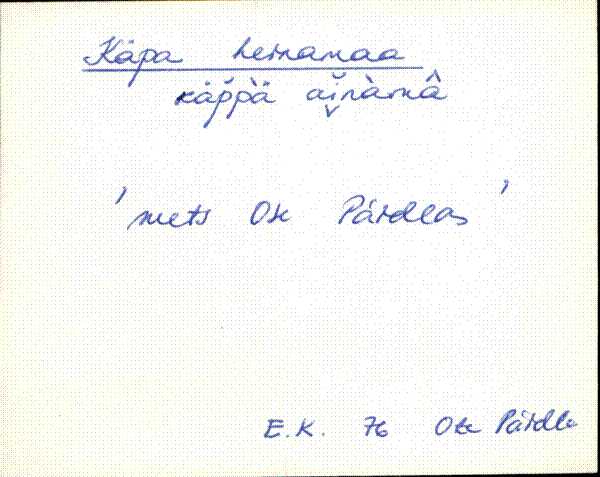 Käpa heinamaa
käp̆p̀ä ăi̬nàmâ
'mets Ote Pärdlas'
E.K. 76 Ote Pärdle